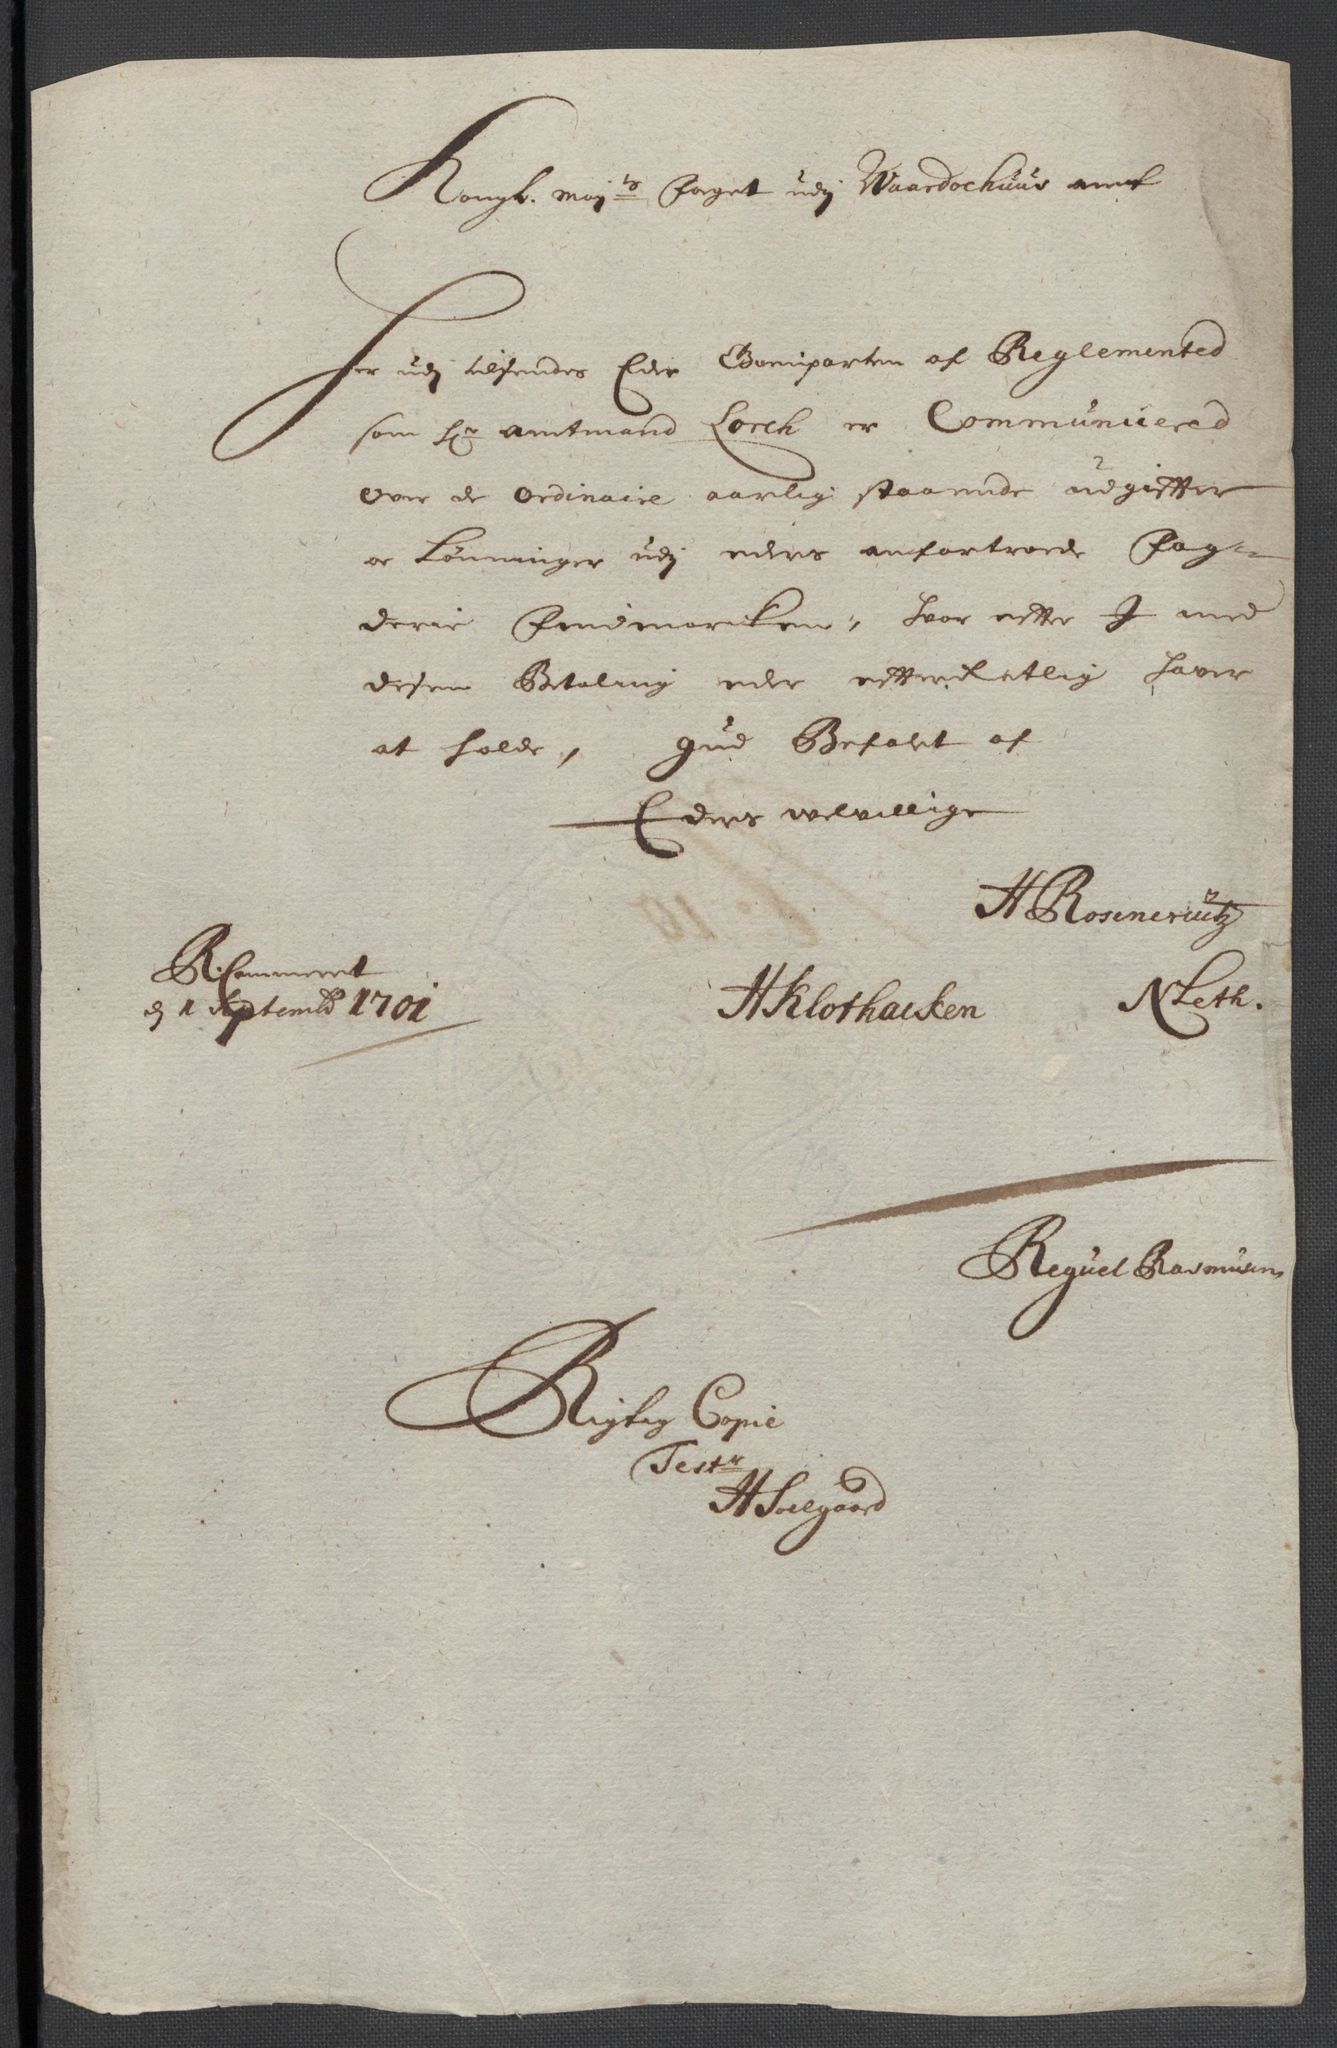 Kongl. May:ts Foget udj Waardoehuus amt
Her udj tilsendes Eder Gienparten af Reglemented
som Hr amtmand Lorch er Communicered
over de ordinaire aarlig staaende udgiffter
oc Lönninger udj eders anfortroede Fog-
derie Findmarcken, hvor effter I med
desen Betaling eder effterretlig haver
at holde, Gud Befalet af
Eders velvillige
H Rosencrütz
R: Cammeret
d 1 Septembr 1701
H Klothacken
N Leth.
Reguel Rasmusen
Rigtig Copie
Test:r
H Soelgaard